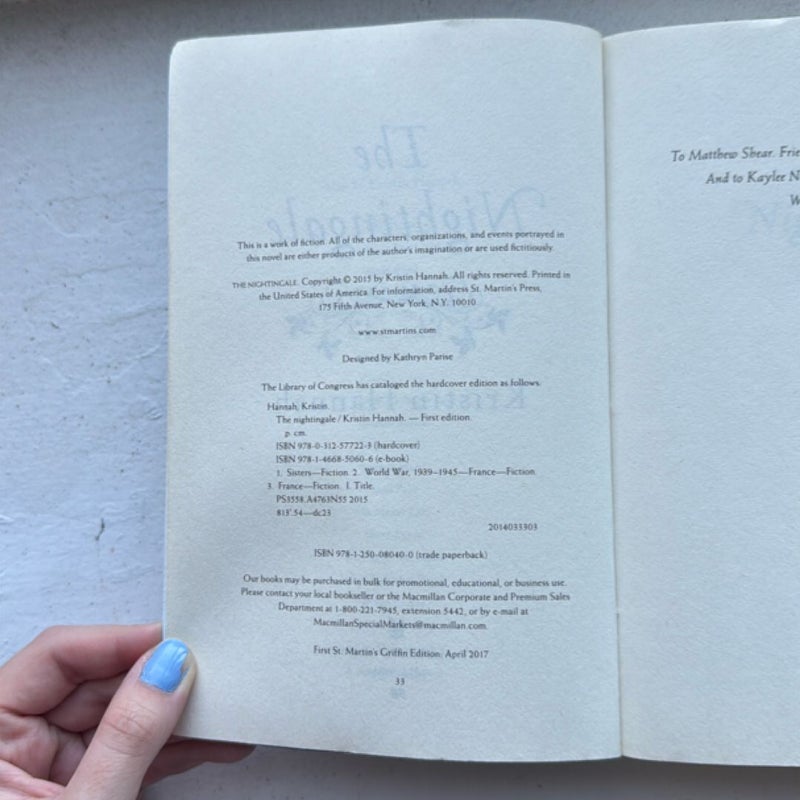 The
Nightingale
This is a work of fiction. All of the characters, organizations, and events portrayed in
this novel are either products of the author's imagination or are used fictitiously.
THE NIGHTINGALE. Copyright © 2015 by Kristin Hannah. All rights reserved. Printed in
the United States of America. For information, address St. Martin's Press,
175 Fifth Avenue, New York, N.Y. 10010.
www.stmartins.com
Designed by Kathryn Parise
The Library of Congress has cataloged the hardcover edition as follows:
Hannah, Kristin.
The nightingale / Kristin Hannah. — First edition.
p. cm.
ISBN 978-0-312-57722-3 (hardcover)
ISBN 978-1-4668-5060-6 (e-book)
1. Sisters—Fiction. 2. World War, 1939–1945—France—Fiction.
3. France—Fiction. I. Title.
PS3558.A4763N55 2015
813'.54—dc23
2014033303
ISBN 978-1-250-08040-0 (trade paperback)
Our books may be purchased in bulk for promotional, educational, or business use.
Please contact your local bookseller or the Macmillan Corporate and Premium Sales
Department at 1-800-221-7945, extension 5442, or by e-mail at
MacmillanSpecialMarkets@macmillan.com.
First St. Martin's Griffin Edition: April 2017
33
To Matthew Shear. Frie
And to Kaylee N
W